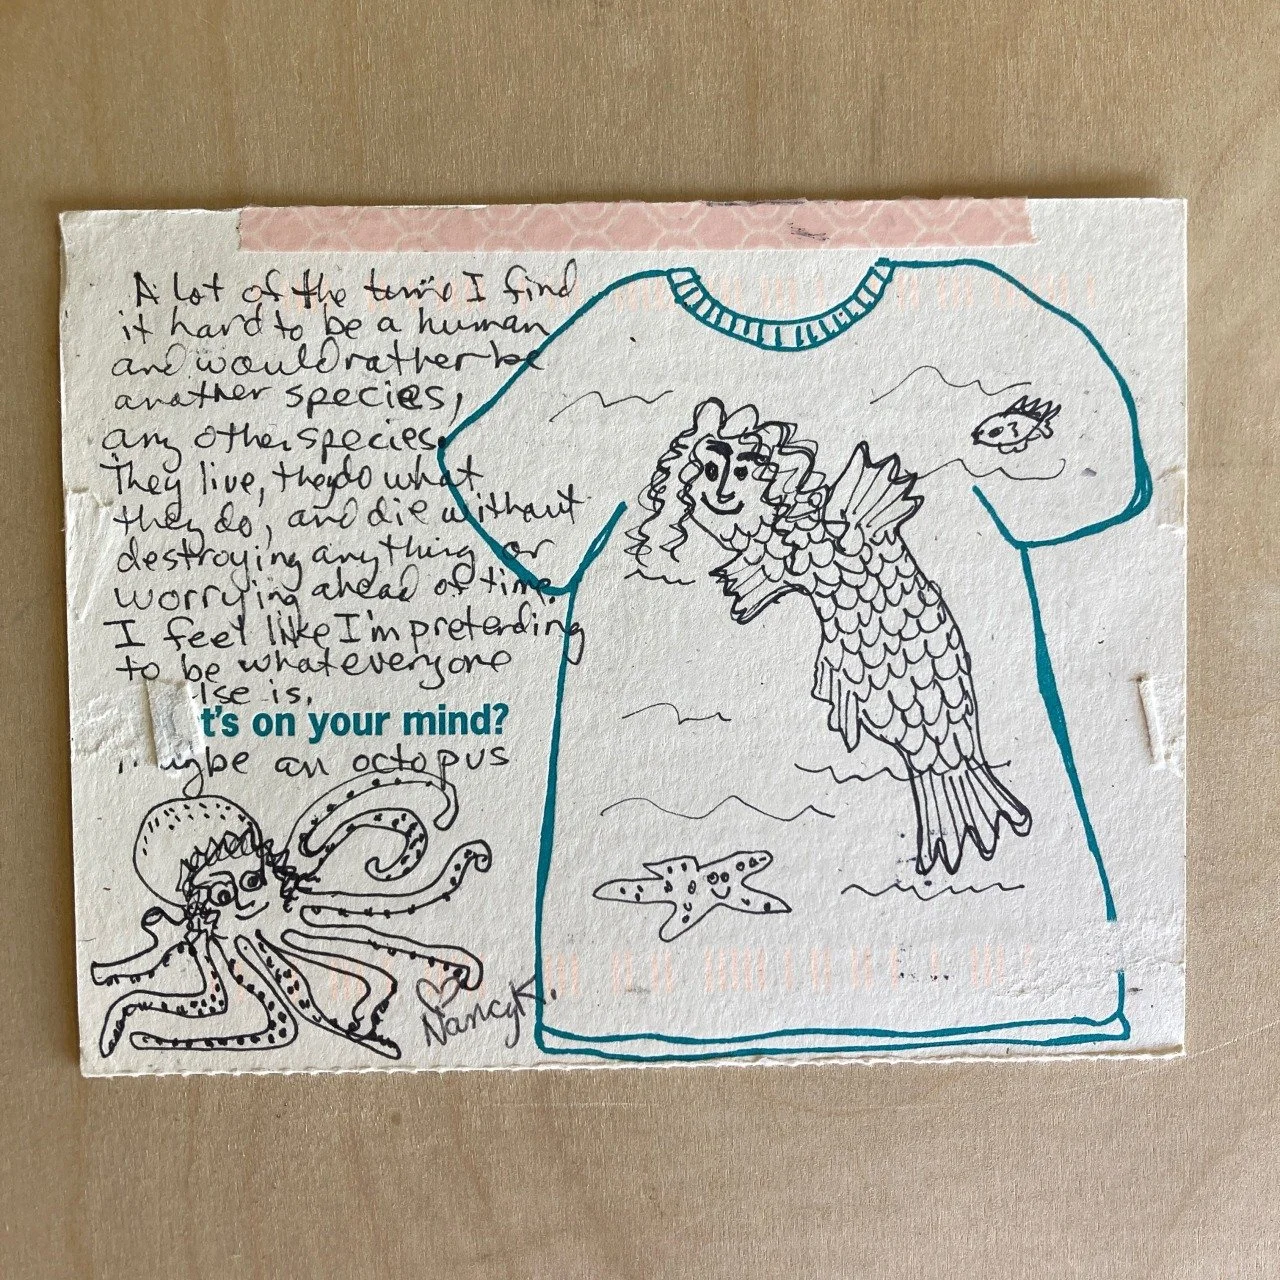 A lot of the time I find
it hard to be a human
and would rather be
another species,
any other species.
They live, they do what
they do, and die without
destroying anything or
worrying ahead of time.
I feel like I'm pretending
to be what everyone
lse is.
t's on your mind?
maybe an octopus
Nancy K.